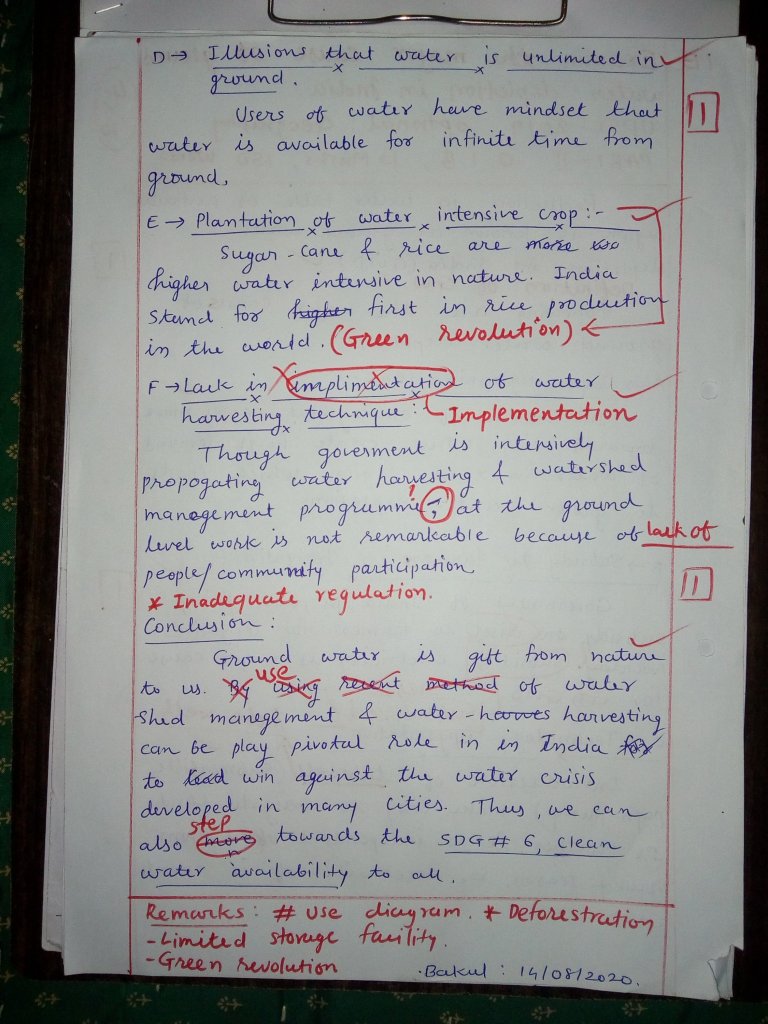 D → Illusions that water is unlimited in
ground.
Users of water have mindset that
11
water is available for infinite time from
ground,
E → Plantation of water intensive crop :-
Sugar-cane & rice are more
higher water intensive in nature. India
Stand for higher first in rice production
in the world. (Green revolution)
F → Lack in implimentation of water
harvesting technique : Implementation
Though goverment is intensively
propogating water harvesting & watershed
management programme, at the ground
level work is not remarkable because of lack of
people/community participation
11
* Inadequate regulation.
Conclusion :
Ground water is gift from nature
use
to us. By using recent method of water
shed manegement & water - harvesting
can be play pivotal role in in India for
to lead win against the water crisis
developed in many cities. Thus, we can
step
also move towards the SDG # 6, clean
water availability to all.
Remarks : # Use diagram. * Deforestration
- Limited storage facility.
- Green revolution
Bakul : 14/08/2020.